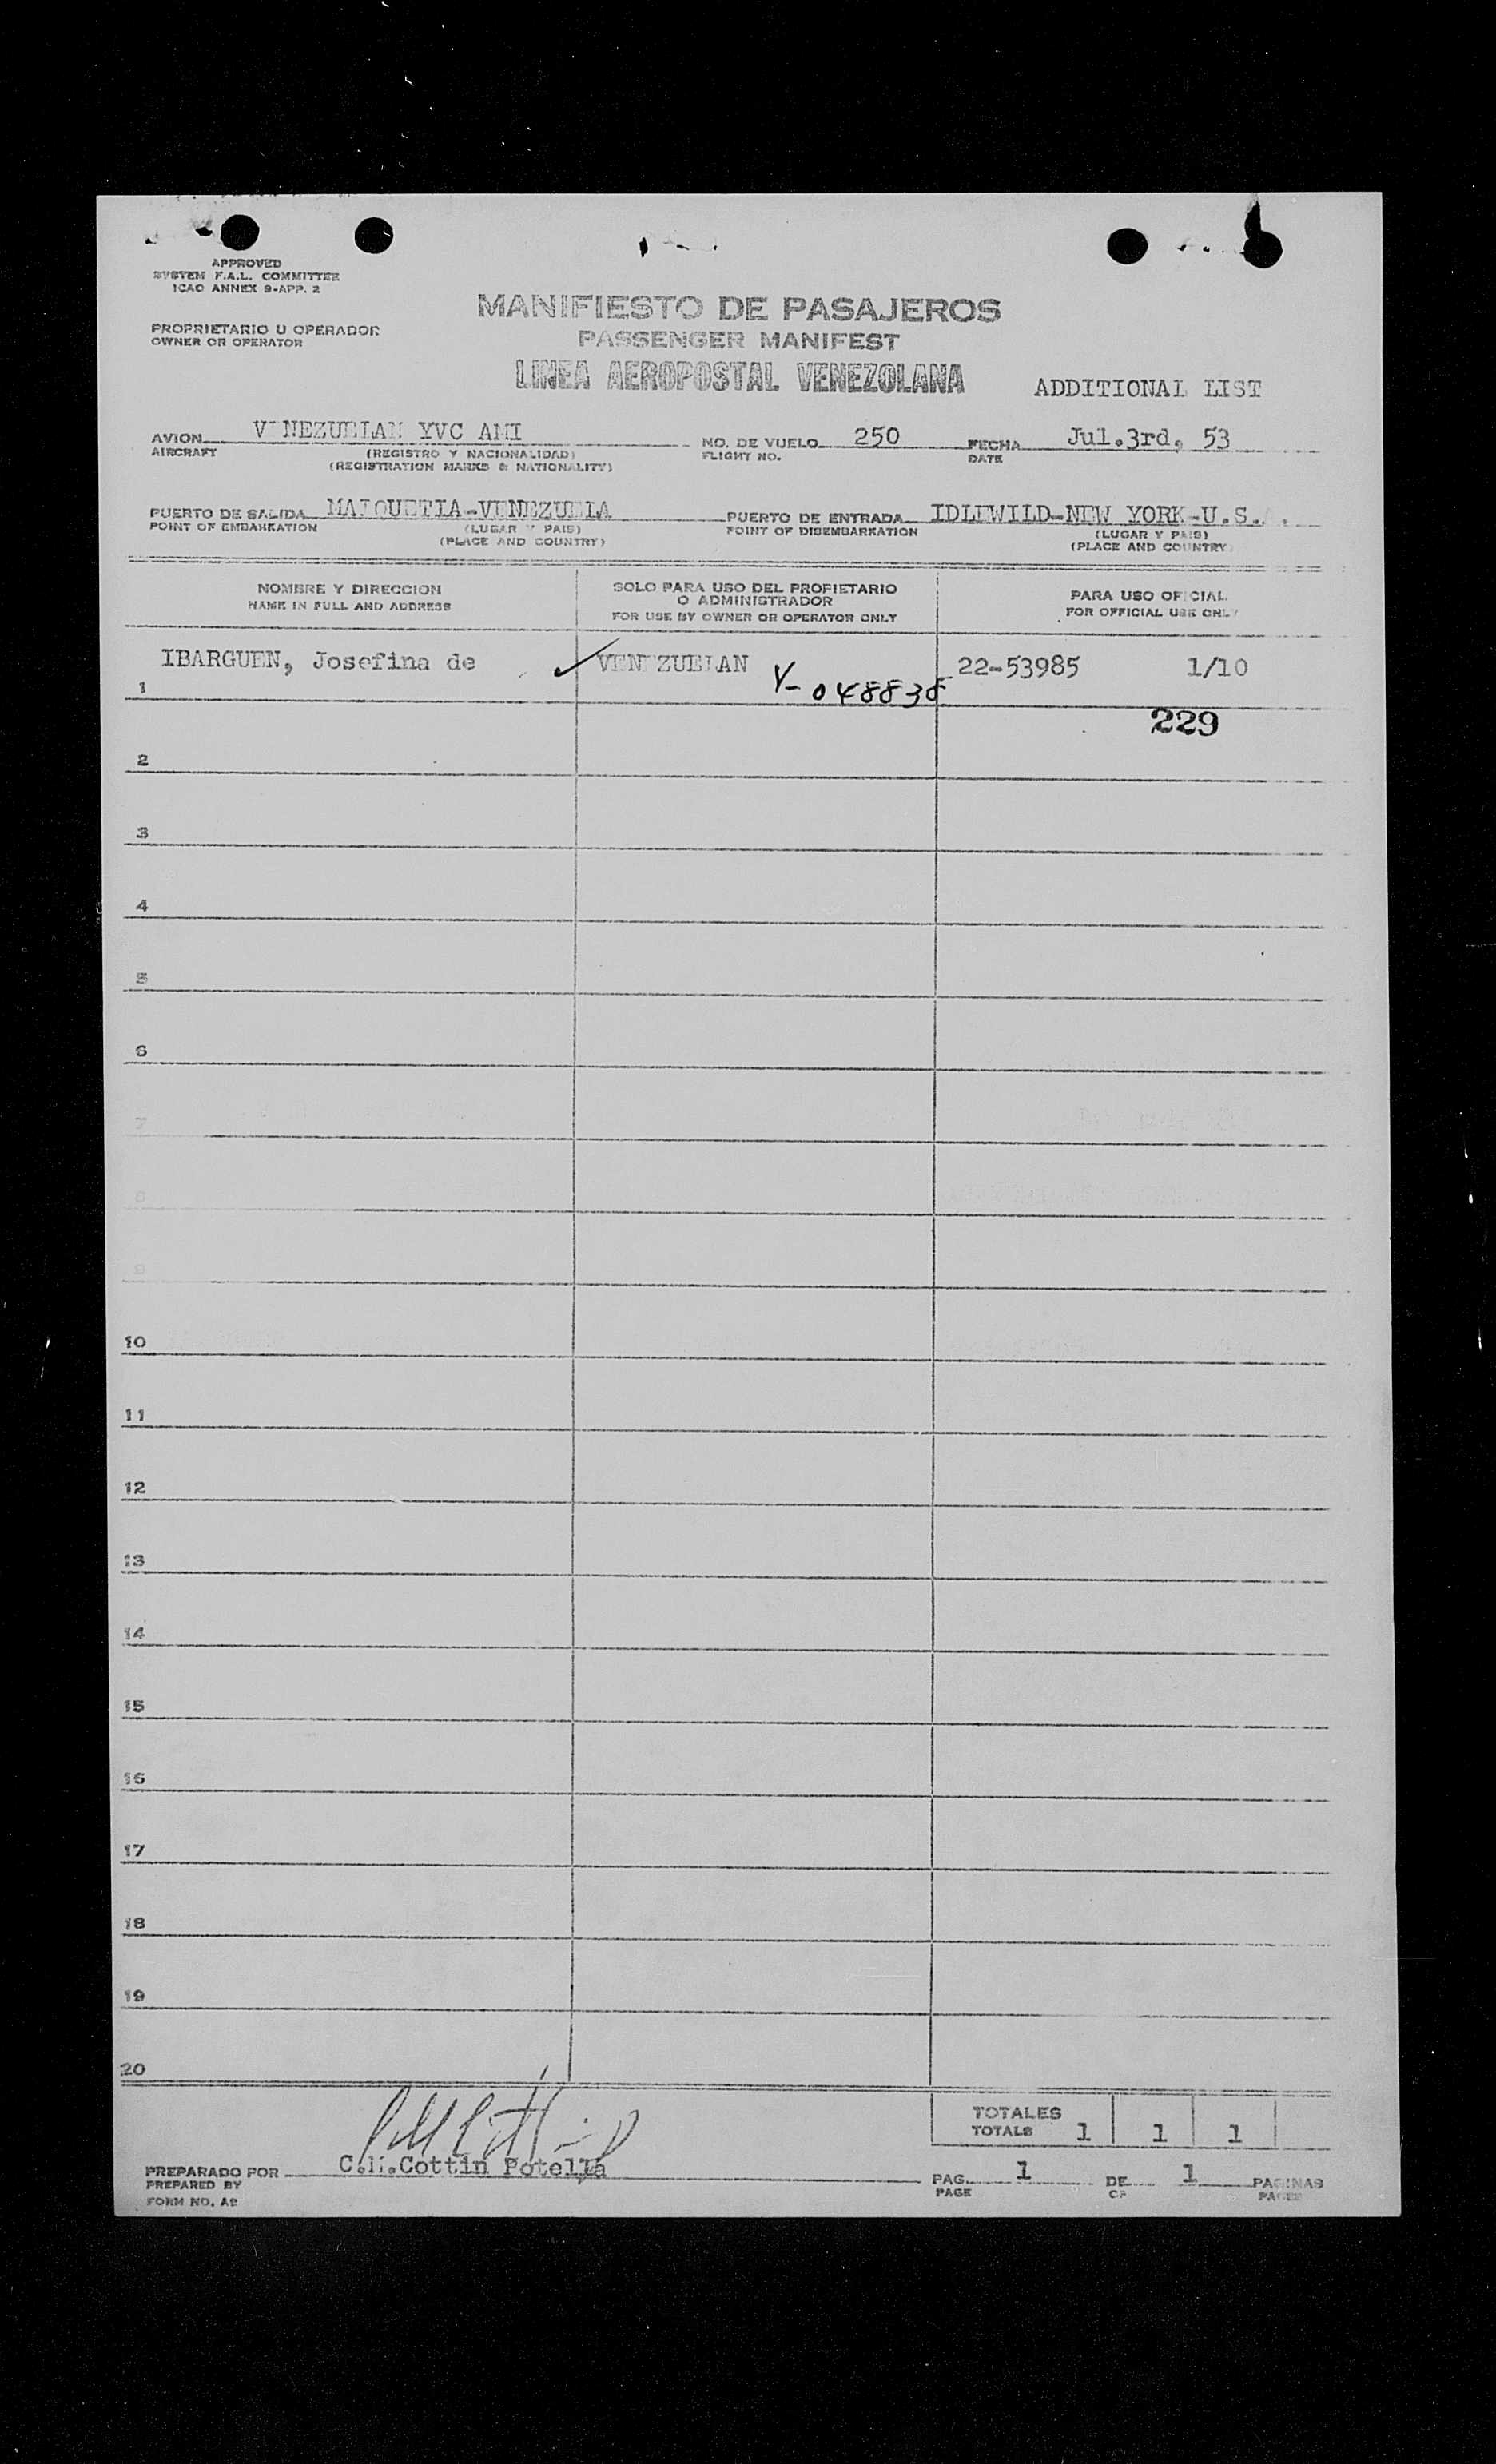 APPROVED
SYSTEM F.A.L. COMMITTEE
ICAO ANNEX 9-APP. 2
MANIFIESTO DE PASAJEROS
PASSENGER MANIFEST
PROPRIETARIO U OPERADOR
OWNER OR OPERATOR
LINEA AEROPOSTAL VENEZOLANA
ADDITIONAL LIST
AVION VENEZUELAN YVC AMI NO. DE VUELO 250 FECHA Jul.3rd, 53
AIRCRAFT (REGISTRO Y NACIONALIDAD) FLIGHT NO. DATE
(REGISTRATION MARKS & NATIONALITY)
PUERTO DE SALIDA MAIQUETIA-VENEZUELA PUERTO DE ENTRADA IDLEWILD-NEW YORK-U.S.
POINT OF EMBARKATION (LUGAR Y PAIS) POINT OF DISEMBARKATION (LUGAR Y PAIS)
(PLACE AND COUNTRY) (PLACE AND COUNTRY)
NOMBRE Y DIRECCION SOLO PARA USO DEL PROPIETARIO PARA USO OFICIAL
NAME IN FULL AND ADDRESS O ADMINISTRADOR FOR OFFICIAL USE ONLY
FOR USE BY OWNER OR OPERATOR ONLY
IBARGUEN, Josefina de VENEZUELAN 22-53985 1/10
1 V-048838
229
2
3
4
5
6
7
8
9
10
11
12
13
14
15
16
17
18
19
20
TOTALES
TOTALS 1 1 1
C.M.Cottin Potella
PREPARADO POR PAG. 1 DE 1 PAGINAS
PREPARED BY PAGE OF PAGES
FORM NO. A2